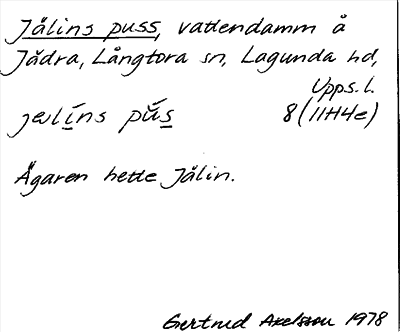 Jälins puss, vattendamm å
Jädra, Långtora sn, Lagunda hd,
Upps. l.
jælíns pŭ́s 8(11H4e)
Ägaren hette Jälin.
Gertrud Axelsson 1978